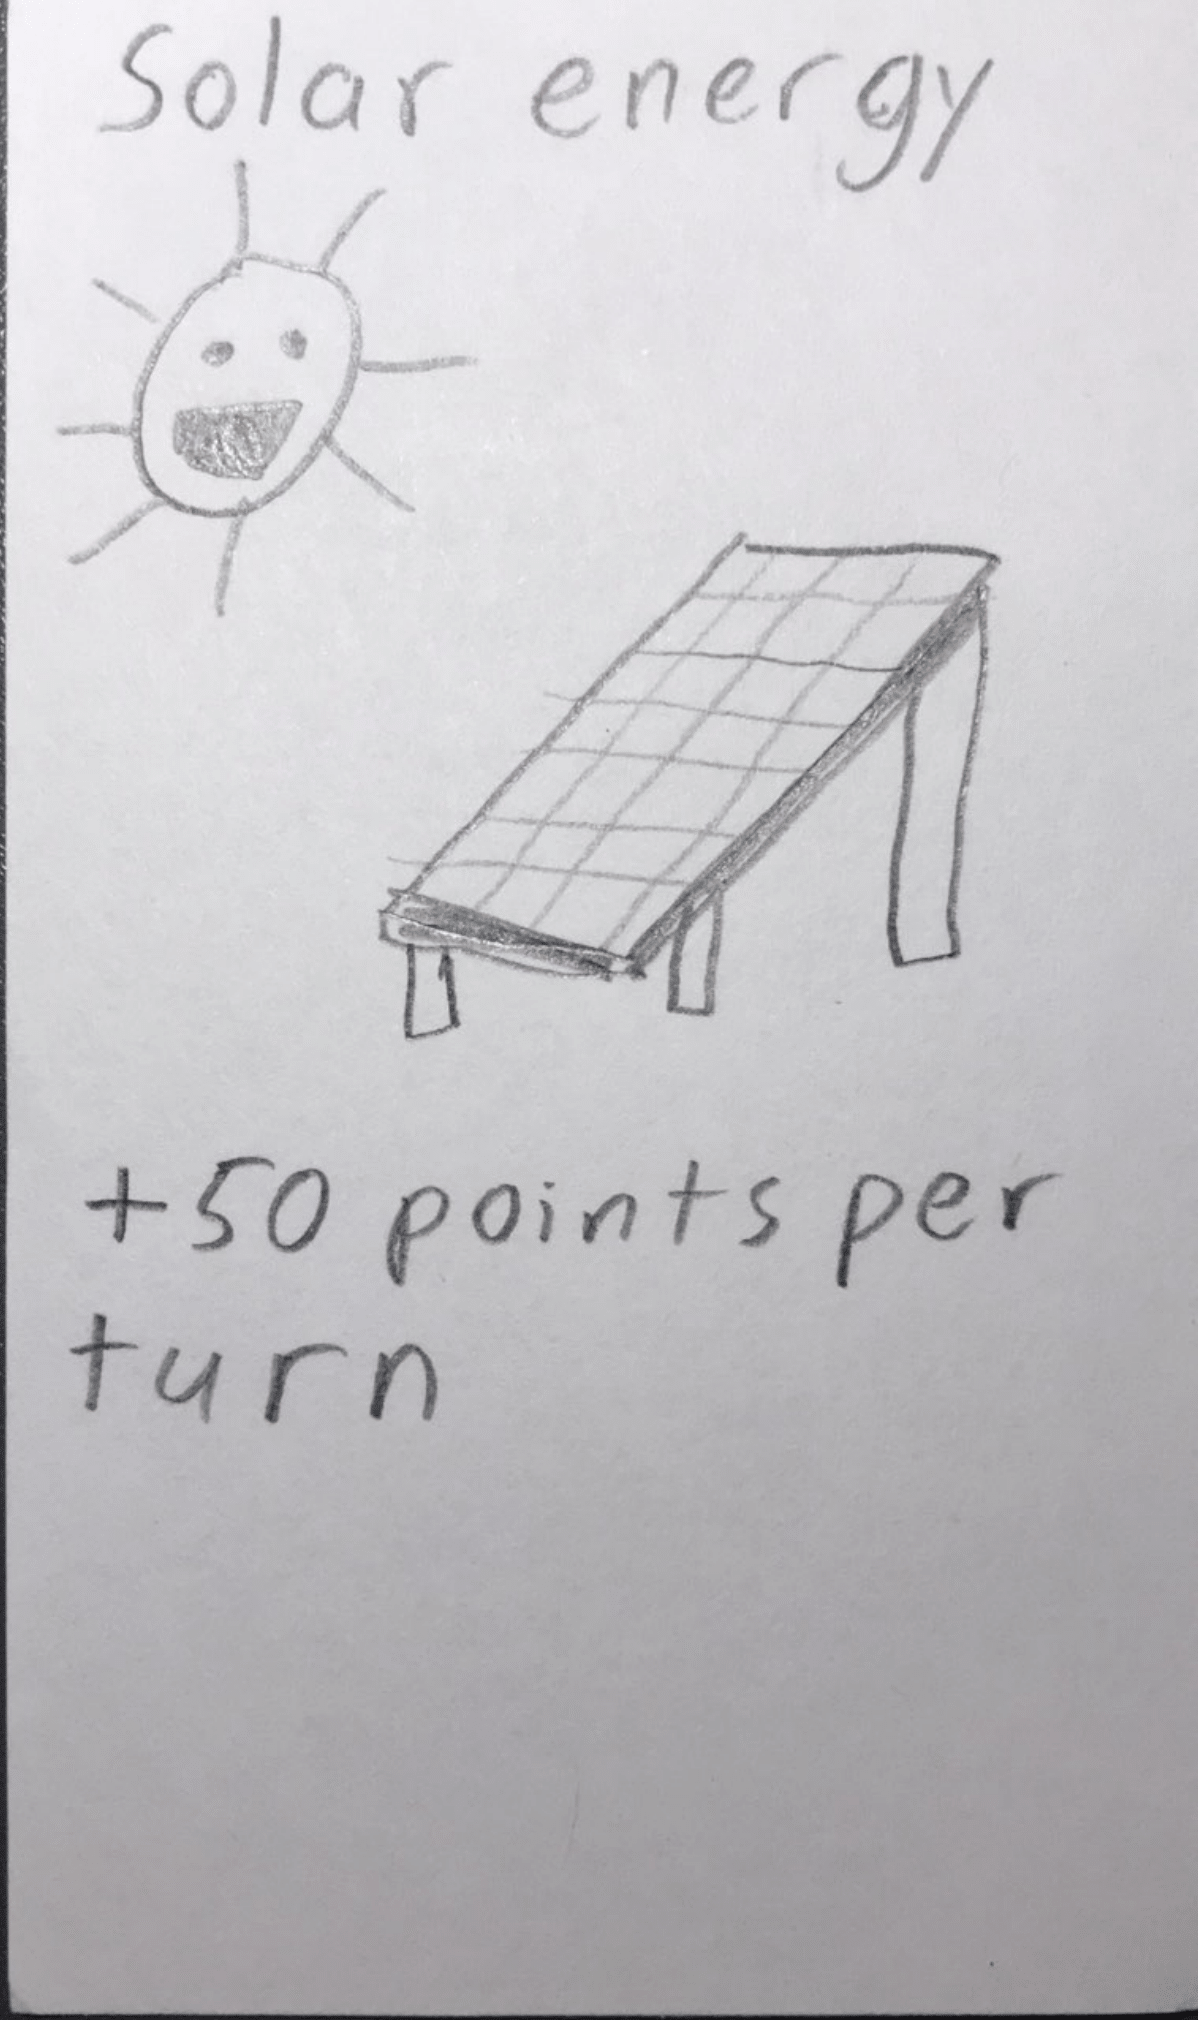 Solar energy
+50 points per
turn